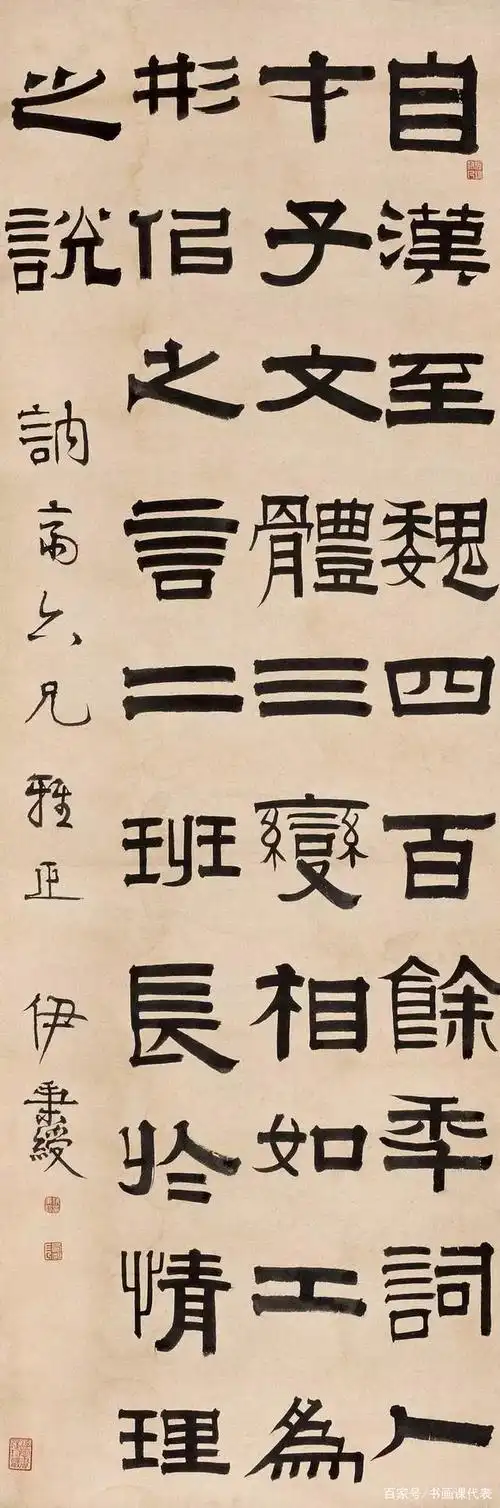 自漢至魏四百餘年詞人
才子文體三變相如工為
形佀之言二班長於情理
之說
訥斋六兄雅正 伊秉綬
百家号/书画课代表